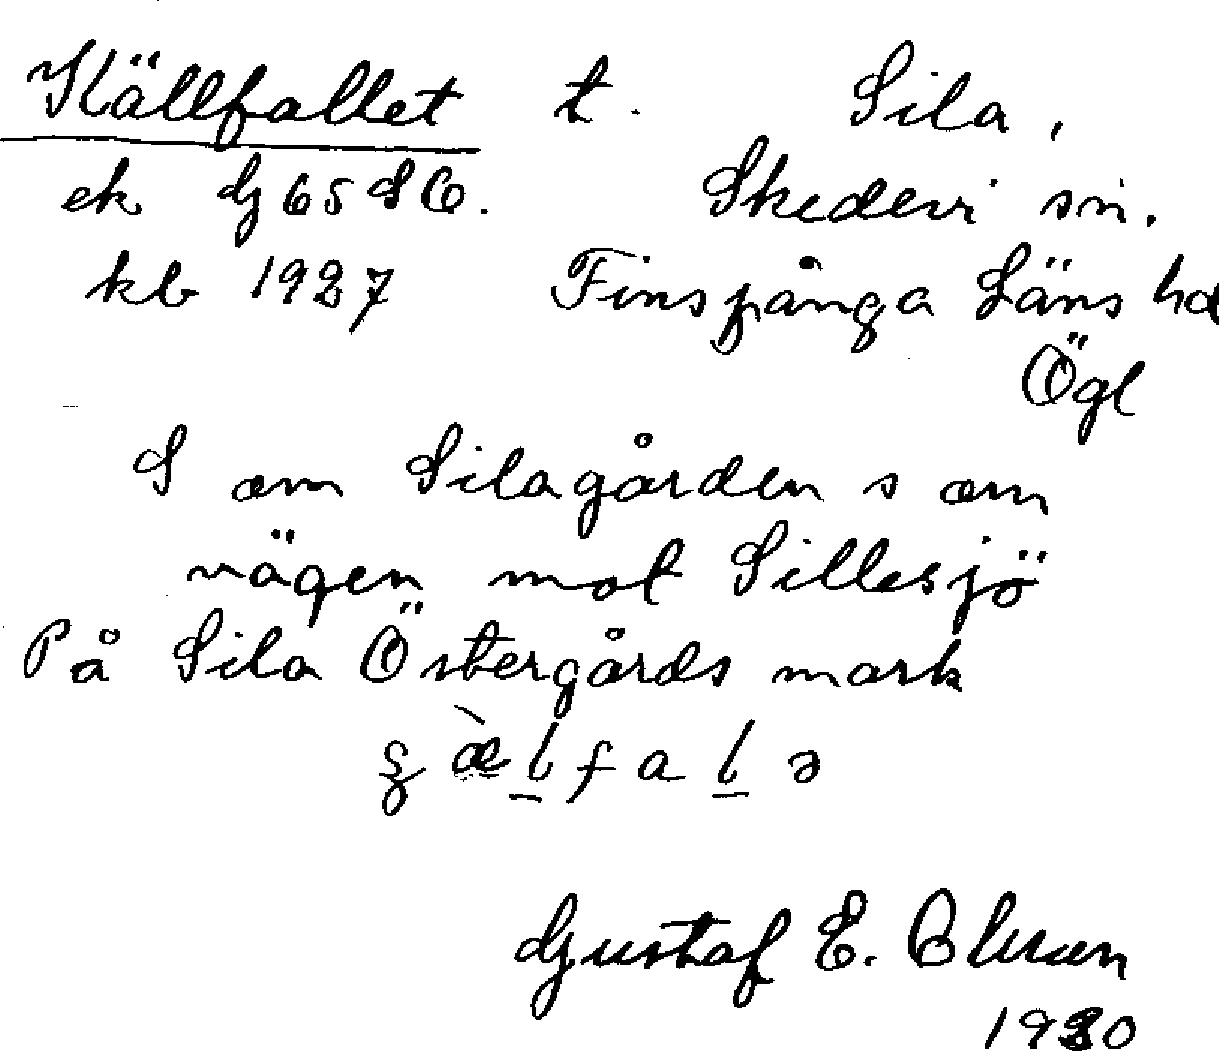 Källfallet t. Sila,
ek G 65 SO. Skedevi sn.
kb 1927 Finspånga Läns hd
Ögl
S om Silagården s om
vägen mot Sillesjö
På Sila Östergårds mark
Gustaf E.
1930